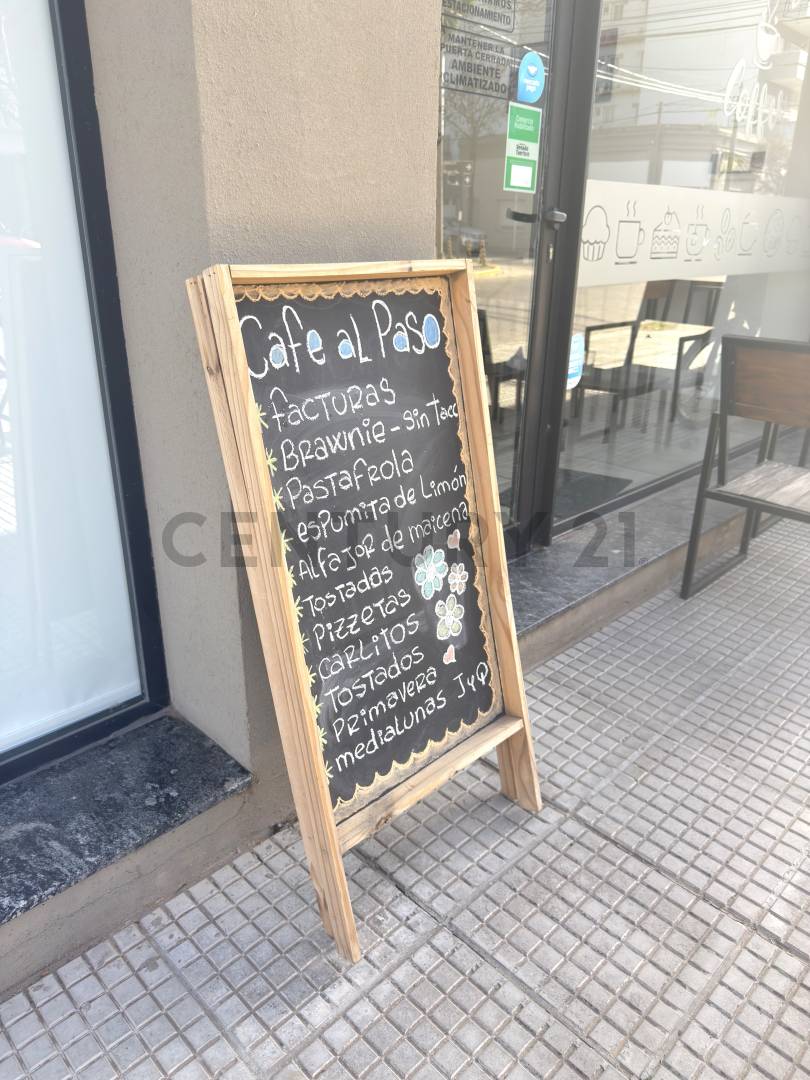 ESTACIONAMIENTO
MANTENER LA
PUERTA CERRADA
AMBIENTE
CLIMATIZADO
mercado
pago
Comercio
Habilitado
Coffee
Cafe aL Paso
* facTURas
* BRawnie - Sin Tacc
* PasTafRola
* esPumita de Limón
* ALfaJoR de maicena
* TosTadas
* Pizzetas
* CaRLiTos
* TosTados
* PRimaveRa
* medialunas JyQ
CENTURY 21